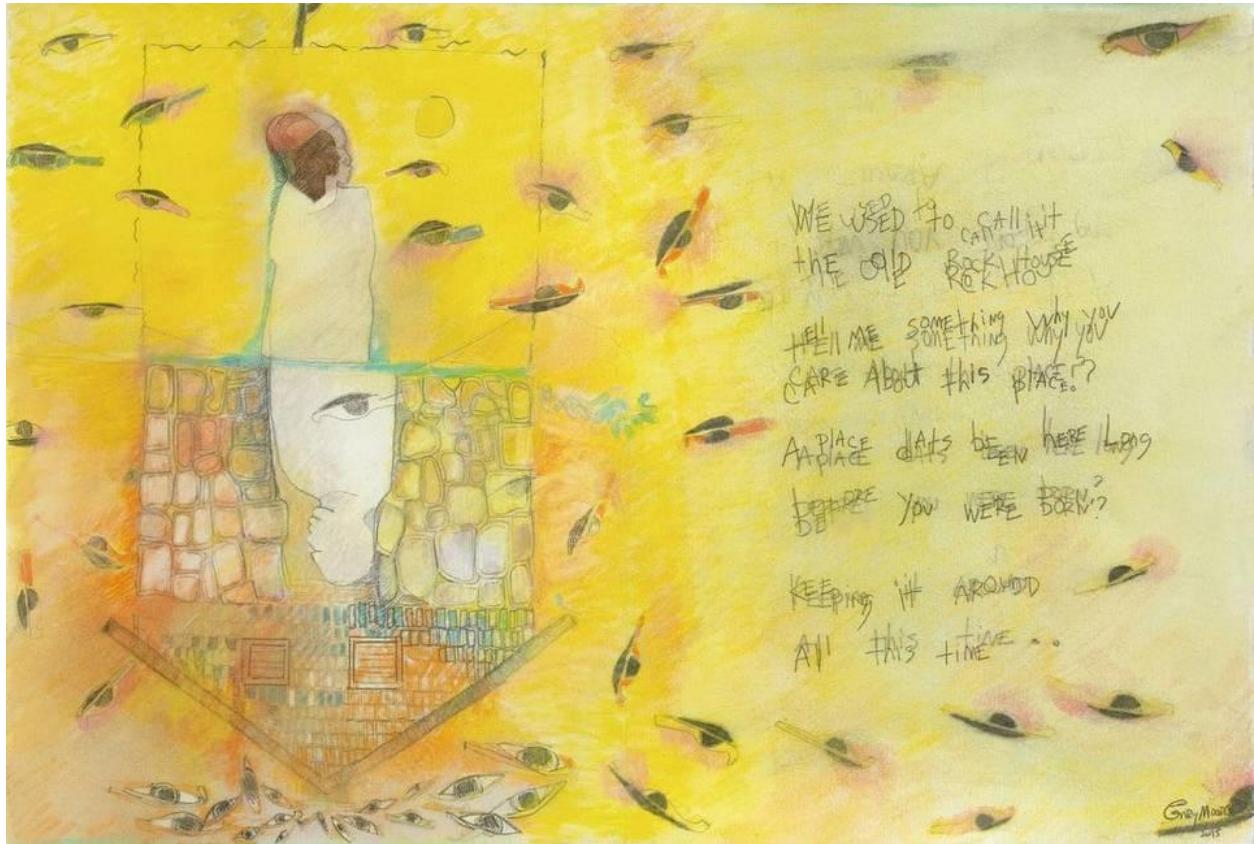 WE USED to to CAll it
thE Old ROCK HOUSE
tEll ME SOMEthing Why YOU
CARE About this PlACE?
A PlACE dAts bEEN hERE long
bEFORE YOU WERE bORN?
KEEPing it AROUND
All this tiME ...
2013